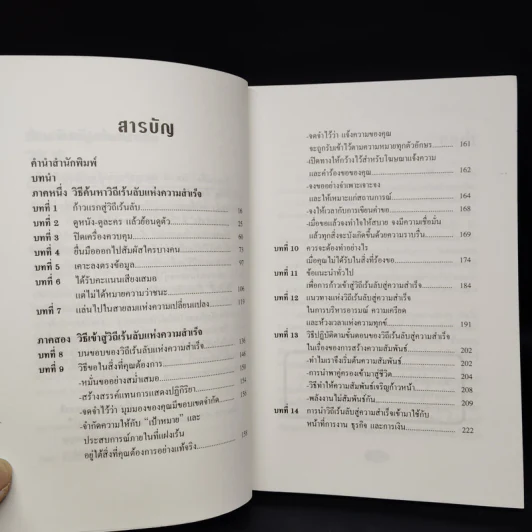 สารบัญ
คำนำสำนักพิมพ์
บทนำ
ภาคหนึ่ง วิธีค้นหาวิถีเร้นลับแห่งความสำเร็จ
บทที่ 1 ก้าวแรกสู่วิถีเร้นลับ
บทที่ 2 ดูหนัง-ดูละคร แล้วย้อนดูตัว 25
บทที่ 3 ปิดเครื่องควบคุม
บทที่ 4 ยื่นมือออกไปสัมผัสใครบางคน
บทที่ 5 เคาะลงตรงข้อมูล 97
บทที่ 6 ได้รับคะแนนเสียงเสมอ
แต่ไม่ได้หมายความว่าชนะ
บทที่ 7 แล่นไปในสายลมแห่งความเปลี่ยนแปลง
ภาคสอง วิธีเข้าสู่วิถีเร้นลับแห่งความสำเร็จ
บทที่ 8 บนขอบของวิถีเร้นลับแห่งความสำเร็จ
บทที่ 9 วิธีขอในสิ่งที่คุณต้องการ
-หมั่นขออย่างสม่ำเสมอ
-สร้างสรรค์แทนการแสดงปฏิกิริยา
-จดจำไว้ว่า มุมมองของคุณมีขอบเขตจำกัด
-จำกัดความให้กับ "เป้าหมาย" และ
ประสบการณ์ภายในที่แฝงเร้น
อยู่ใต้สิ่งที่คุณต้องการอย่างแท้จริง
-จดจำไว้ว่า แจ้งความของคุณ
จะถูกรับเข้าไว้ตามความหมายทุกตัวอักษร 161
-เปิดทางให้กว้างไว้สำหรับโฆษณาแจ้งความ
และคำร้องขอของคุณ 163
-จงขออย่างจำเพาะเจาะจง
และให้เหมาะแก่สถานการณ์ 164
-จงให้เวลากับการเขียนคำขอ 168
-เมื่อขอแล้วจงทำใจให้สบาย จงมีความเชื่อมั่น
แล้วทุกสิ่งจะบังเกิดขึ้นด้วยความราบรื่น 169
บทที่ 10 ควรจะต้องทำอย่างไร
เมื่อคุณไม่ได้รับในสิ่งที่ร้องขอ 174
บทที่ 11 ข้อแนะนำทั่วไป
เพื่อการก้าวเข้าสู่วิถีเร้นลับแห่งความสำเร็จ 184
บทที่ 12 แนวทางแห่งวิถีเร้นลับสู่ความสำเร็จ
ในการบริหารอารมณ์ ความเครียด
และห้วงเวลาแห่งความทุกข์ 191
บทที่ 13 วิธีปฏิบัติตามขั้นตอนของวิถีเร้นลับสู่ความสำเร็จ
ในเรื่องของการสร้างความสัมพันธ์ 202
-ทำไมเราจึงเริ่มต้นความสัมพันธ์ 202
-การนำพาคู่ครองเข้ามาสู่ชีวิต 206
-วิธีทำให้ความสัมพันธ์เจริญก้าวหน้า 208
-พลังงานไม่สัมพันธ์กัน 209
บทที่ 14 การนำวิถีเร้นลับสู่ความสำเร็จเข้ามาใช้กับ
หน้าที่การงาน ธุรกิจ และการเงิน 222